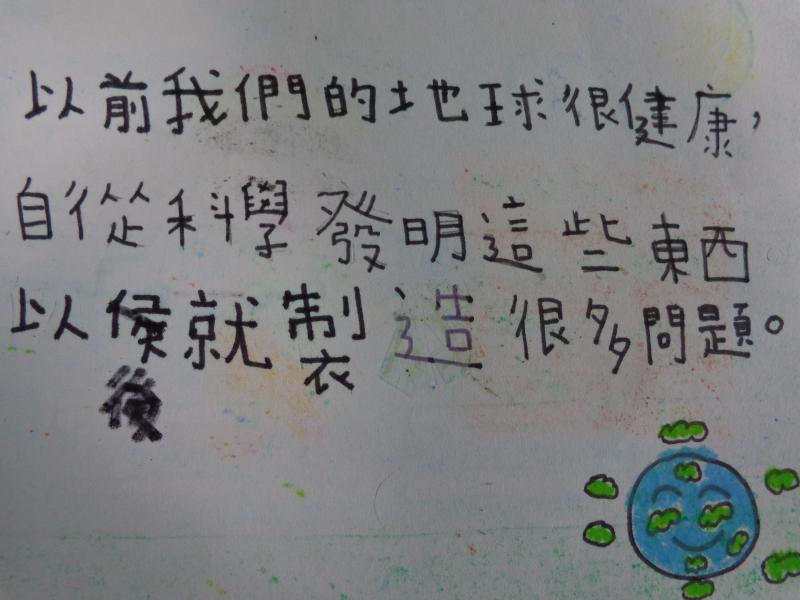 以前我們的地球很健康，
自從科學發明這些東西
以侯就製造很多問題。
後